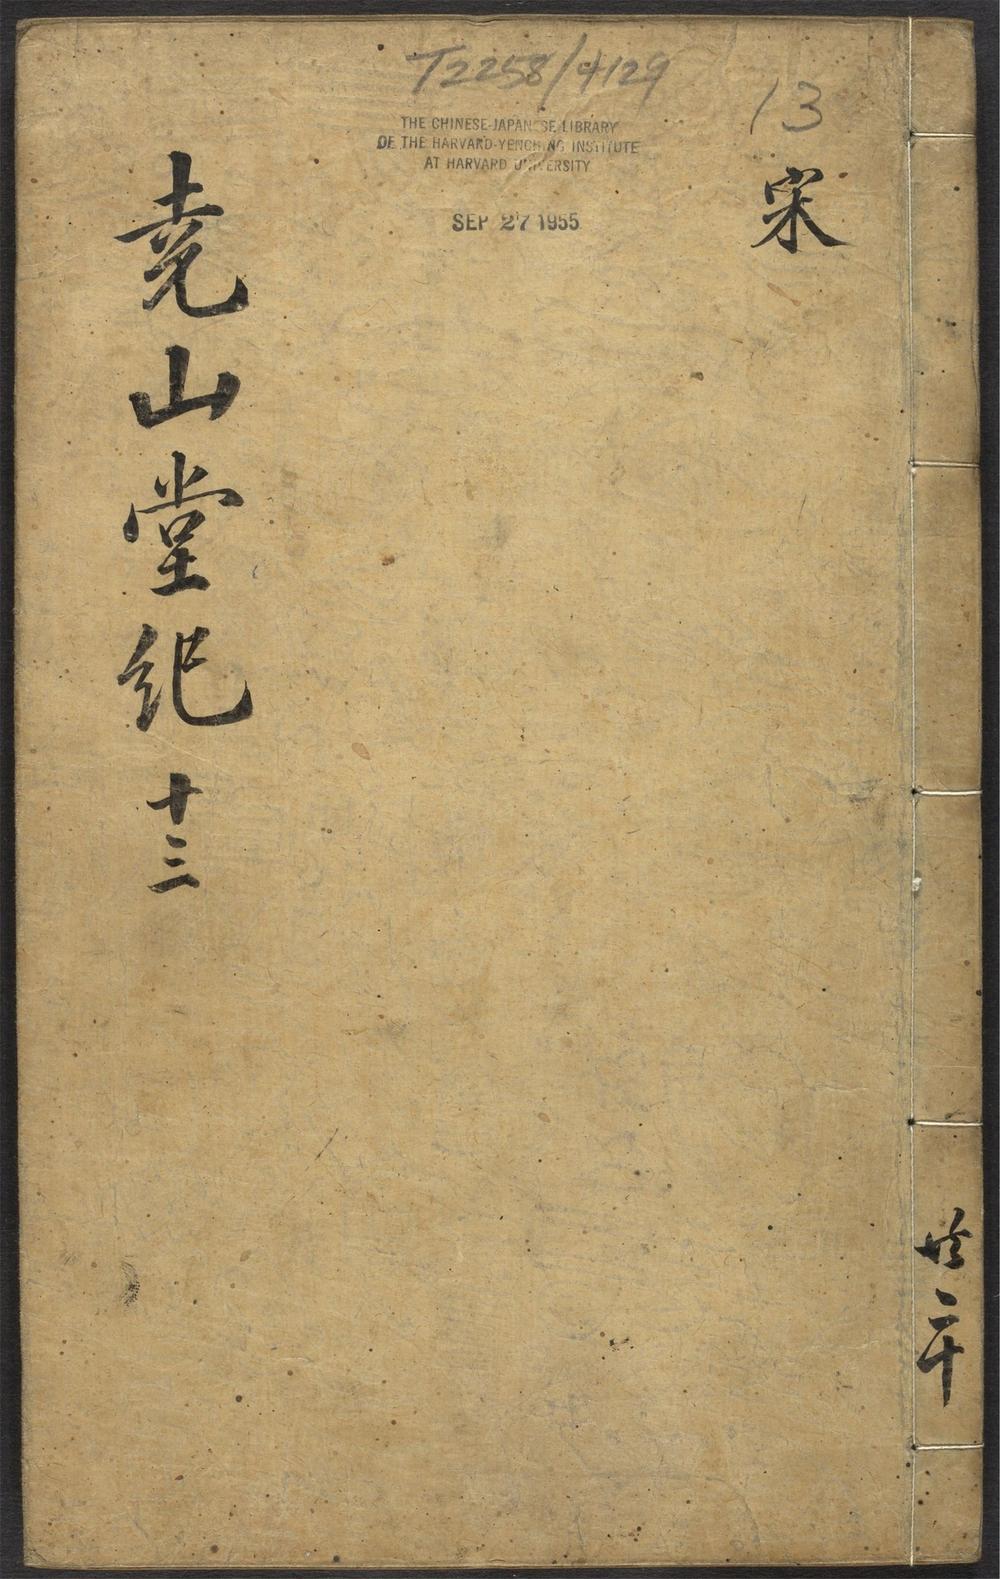 T2258/4129
13
THE CHINESE-JAPANESE LIBRARY
OF THE HARVARD-YENCHING INSTITUTE
AT HARVARD UNIVERSITY
SEP 27 1955
宋
尭山堂紀 十三
共二十